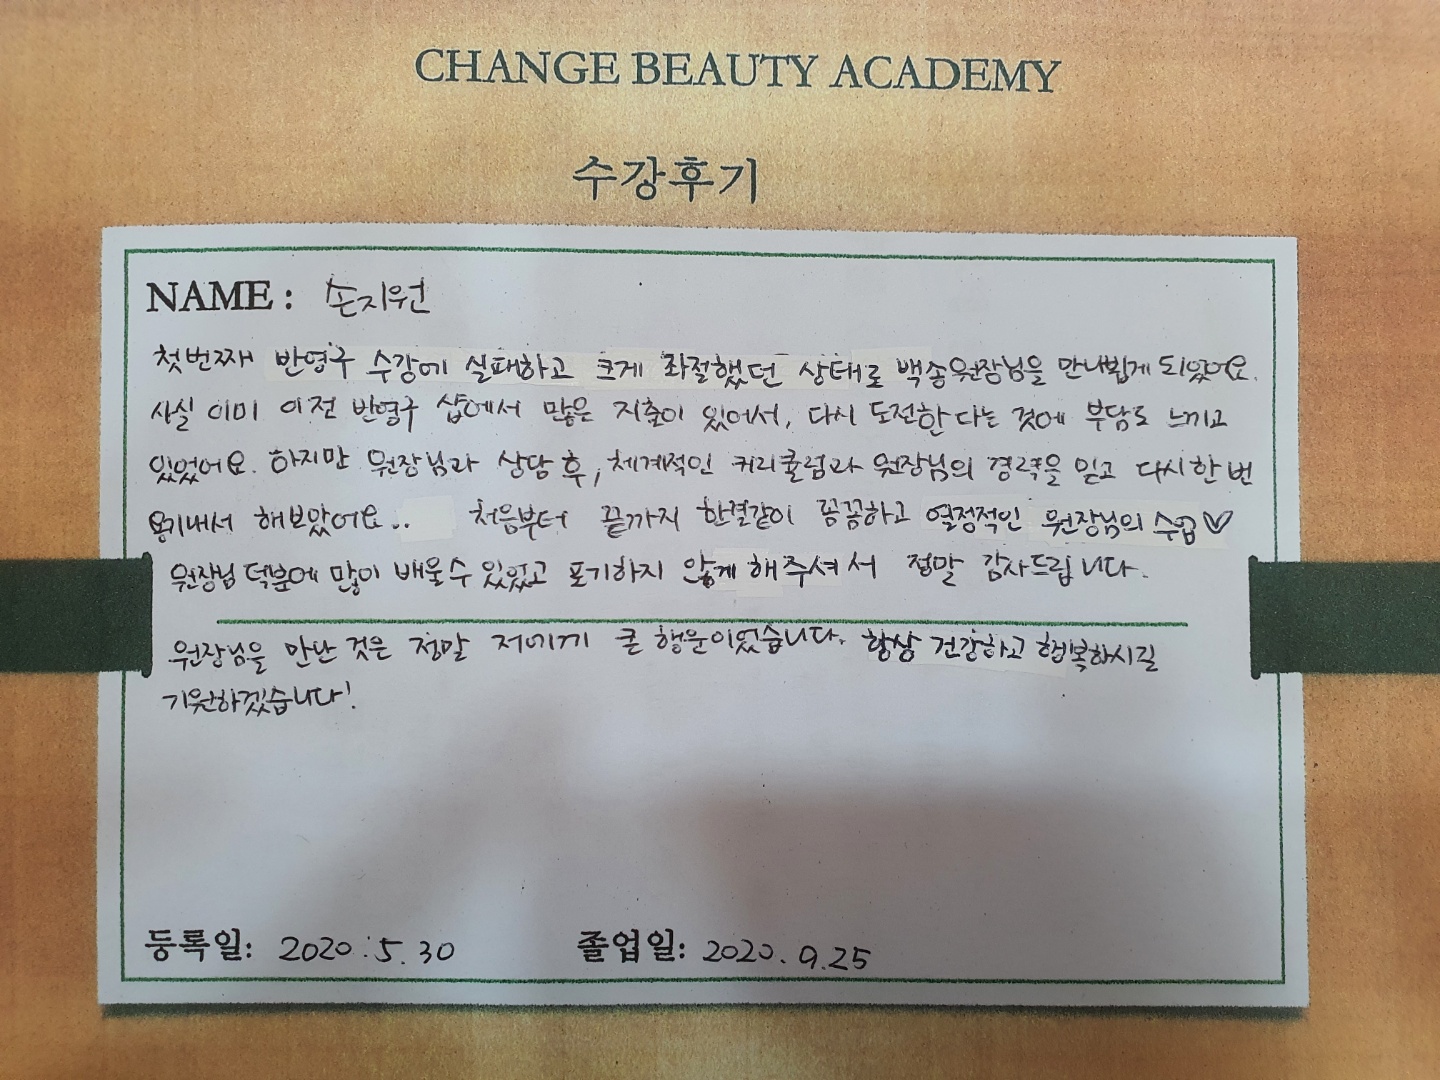 CHANGE BEAUTY ACADEMY
수강후기
NAME : 손지원
첫번째 반영구 수강에 실패하고 크게 좌절했던 상태로 백송원장님을 만나뵙게 되었어요.
사실 이미 이전 반영구 샵에서 많은 지출이 있어서, 다시 도전한다는 것에 부담도 느끼고
있었어요. 하지만 원장님과 상담 후, 체계적인 커리큘럼과 원장님의 경력을 믿고 다시 한 번
용기내서 해보았어요.. 처음부터 끝까지 한결같이 꼼꼼하고 열정적인 원장님의 수업♡
원장님 덕분에 많이 배울수 있었고 포기하지 않게 해주셔서 정말 감사드립니다.
원장님을 만난 것은 정말 저에게 큰 행운이었습니다. 항상 건강하고 행복하시길
기원하겠습니다!
등록일: 2020.5.30 졸업일: 2020.9.25